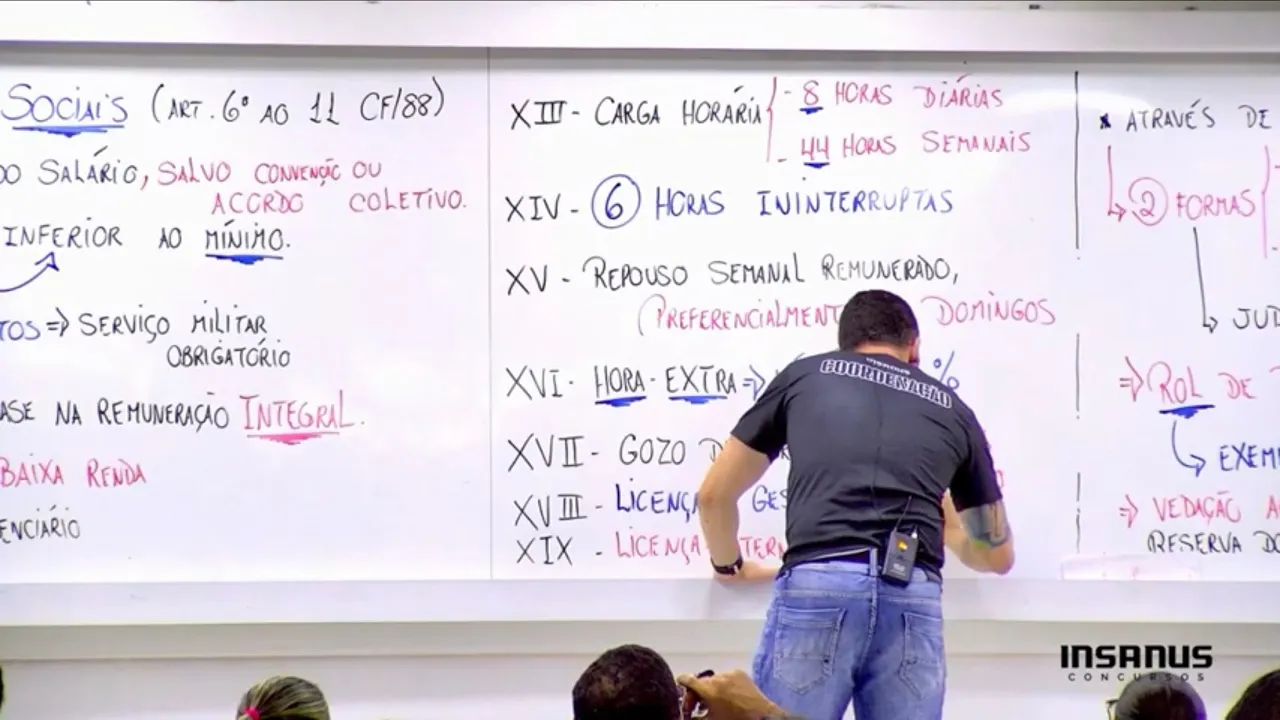 SOCIAIS (ART. 6º AO 11 CF/88)
DO SALÁRIO, SALVO CONVENÇÃO OU
ACORDO COLETIVO.
INFERIOR AO MÍNIMO.
TOS => SERVIÇO MILITAR
OBRIGATÓRIO
ASE NA REMUNERAÇÃO INTEGRAL.
BAIXA RENDA
ENCIÁRIO
XIII - CARGA HORÁRIA - 8 HORAS DIÁRIAS
- 44 HORAS SEMANAIS
XIV - 6 HORAS ININTERRUPTAS
XV - REPOUSO SEMANAL REMUNERADO,
(PREFERENCIALMENT DOMINGOS
XVI - HORA-EXTRA => %
XVII - GOZO D
XVIII - LICENÇA GES
XIX - LICENÇA TERN
ATRAVÉS DE
2 FORMAS
JUD
=> ROL DE
EXEM
=> VEDAÇÃO A
RESERVA DO
INSANUS
COORDENAÇÃO
INSANUS
CONCURSOS